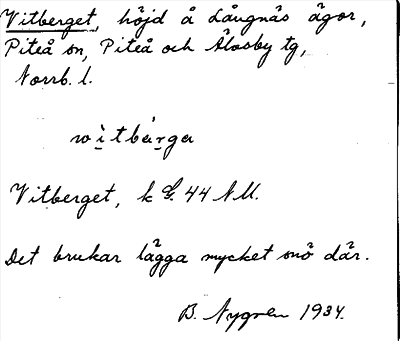 Vitberget, höjd å Långnäs ägor,
Piteå sn, Piteå och Älvsby tg,
Norrb. l.
witbärga
Vitberget, k G. 44 NU.
Det brukar lägga mycket snö där.
B. Nygren 1934.